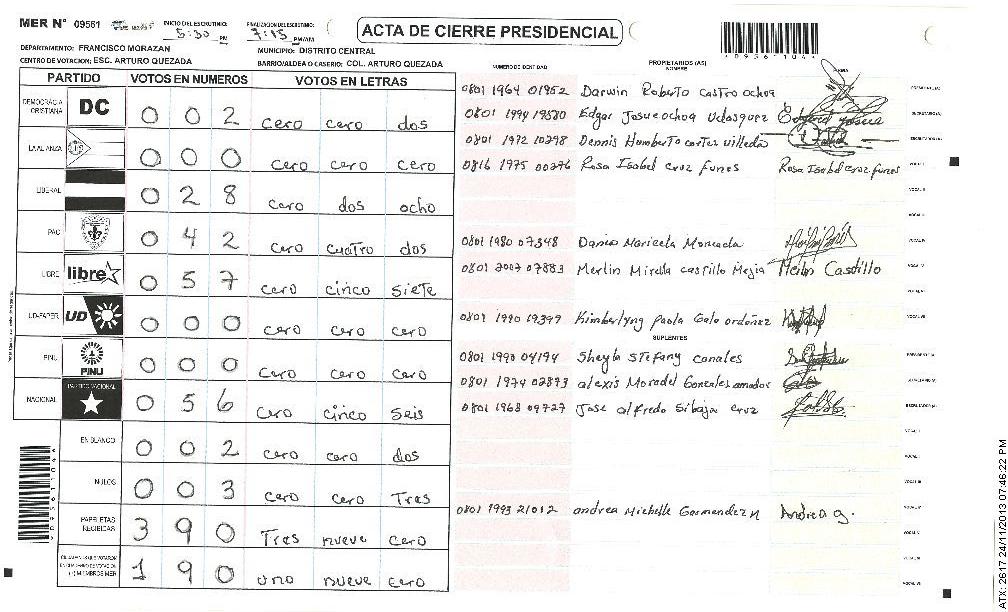 MER N° 09561
INICIO DEL ESCRUTINIO: 5:30 PM
FINALIZACION DEL ESCRUTINIO: 7:15 PM/AM
ACTA DE CIERRE PRESIDENCIAL
DEPARTAMENTO: FRANCISCO MORAZAN
MUNICIPIO: DISTRITO CENTRAL
CENTRO DE VOTACION: ESC. ARTURO QUEZADA
BARRIO/ALDEA O CASERIO: COL. ARTURO QUEZADA
PARTIDO VOTOS EN NUMEROS VOTOS EN LETRAS
DEMOCRACIA CRISTIANA DC 0 0 2 cero cero dos
LA ALIANZA 0 0 0 cero cero cero
LIBERAL 0 2 8 cero dos ocho
PAC 0 4 2 cero cuatro dos
LIBRE libre 0 5 7 cero cinco siete
UD-FAPER UD 0 0 0 cero cero cero
PINU PINU 0 0 0 cero cero cero
NACIONAL PARTIDO NACIONAL 0 5 6 cero cinco seis
EN BLANCO 0 0 2 cero cero dos
NULOS 0 0 3 cero cero Tres
PAPELETAS RECIBIDAS 3 9 0 Tres nueve cero
CIUDADANOS QUE VOTARON EN CUADERNO DE VOTACION (+) MIEMBROS MER 1 9 0 uno nueve cero
NUMERO DE IDENTIDAD
PROPIETARIOS (AS)
NOMBRE
FIRMA
0801 1964 01952 Darwin Roberto castro ochoa
0801 1994 19580 Edgar Josue ochoa Velasquez
0801 1972 10298 Dennis Humberto cortes villeda
0816 1975 00276 Rosa Isabel cruz funes Rosa Isabel cruz funes
0801 1980 07348 Dania Maricela Moncada
0801 2007 07883 Merlin Mirella castillo Mejia Merlin Castillo
0801 1990 19399 Kimberlyng paola Galo ordoñez
SUPLENTES
0801 1990 04194 Sheyla Stefany canales
0801 1974 02873 alexis Moradel Gonzales amador
0801 1968 09727 Jose alfredo Sibaja cruz
0801 1993 21012 andrea Michelle Garmendez M Andrea g.
ATX: 2617 24/11/2013 07:46:22 PM